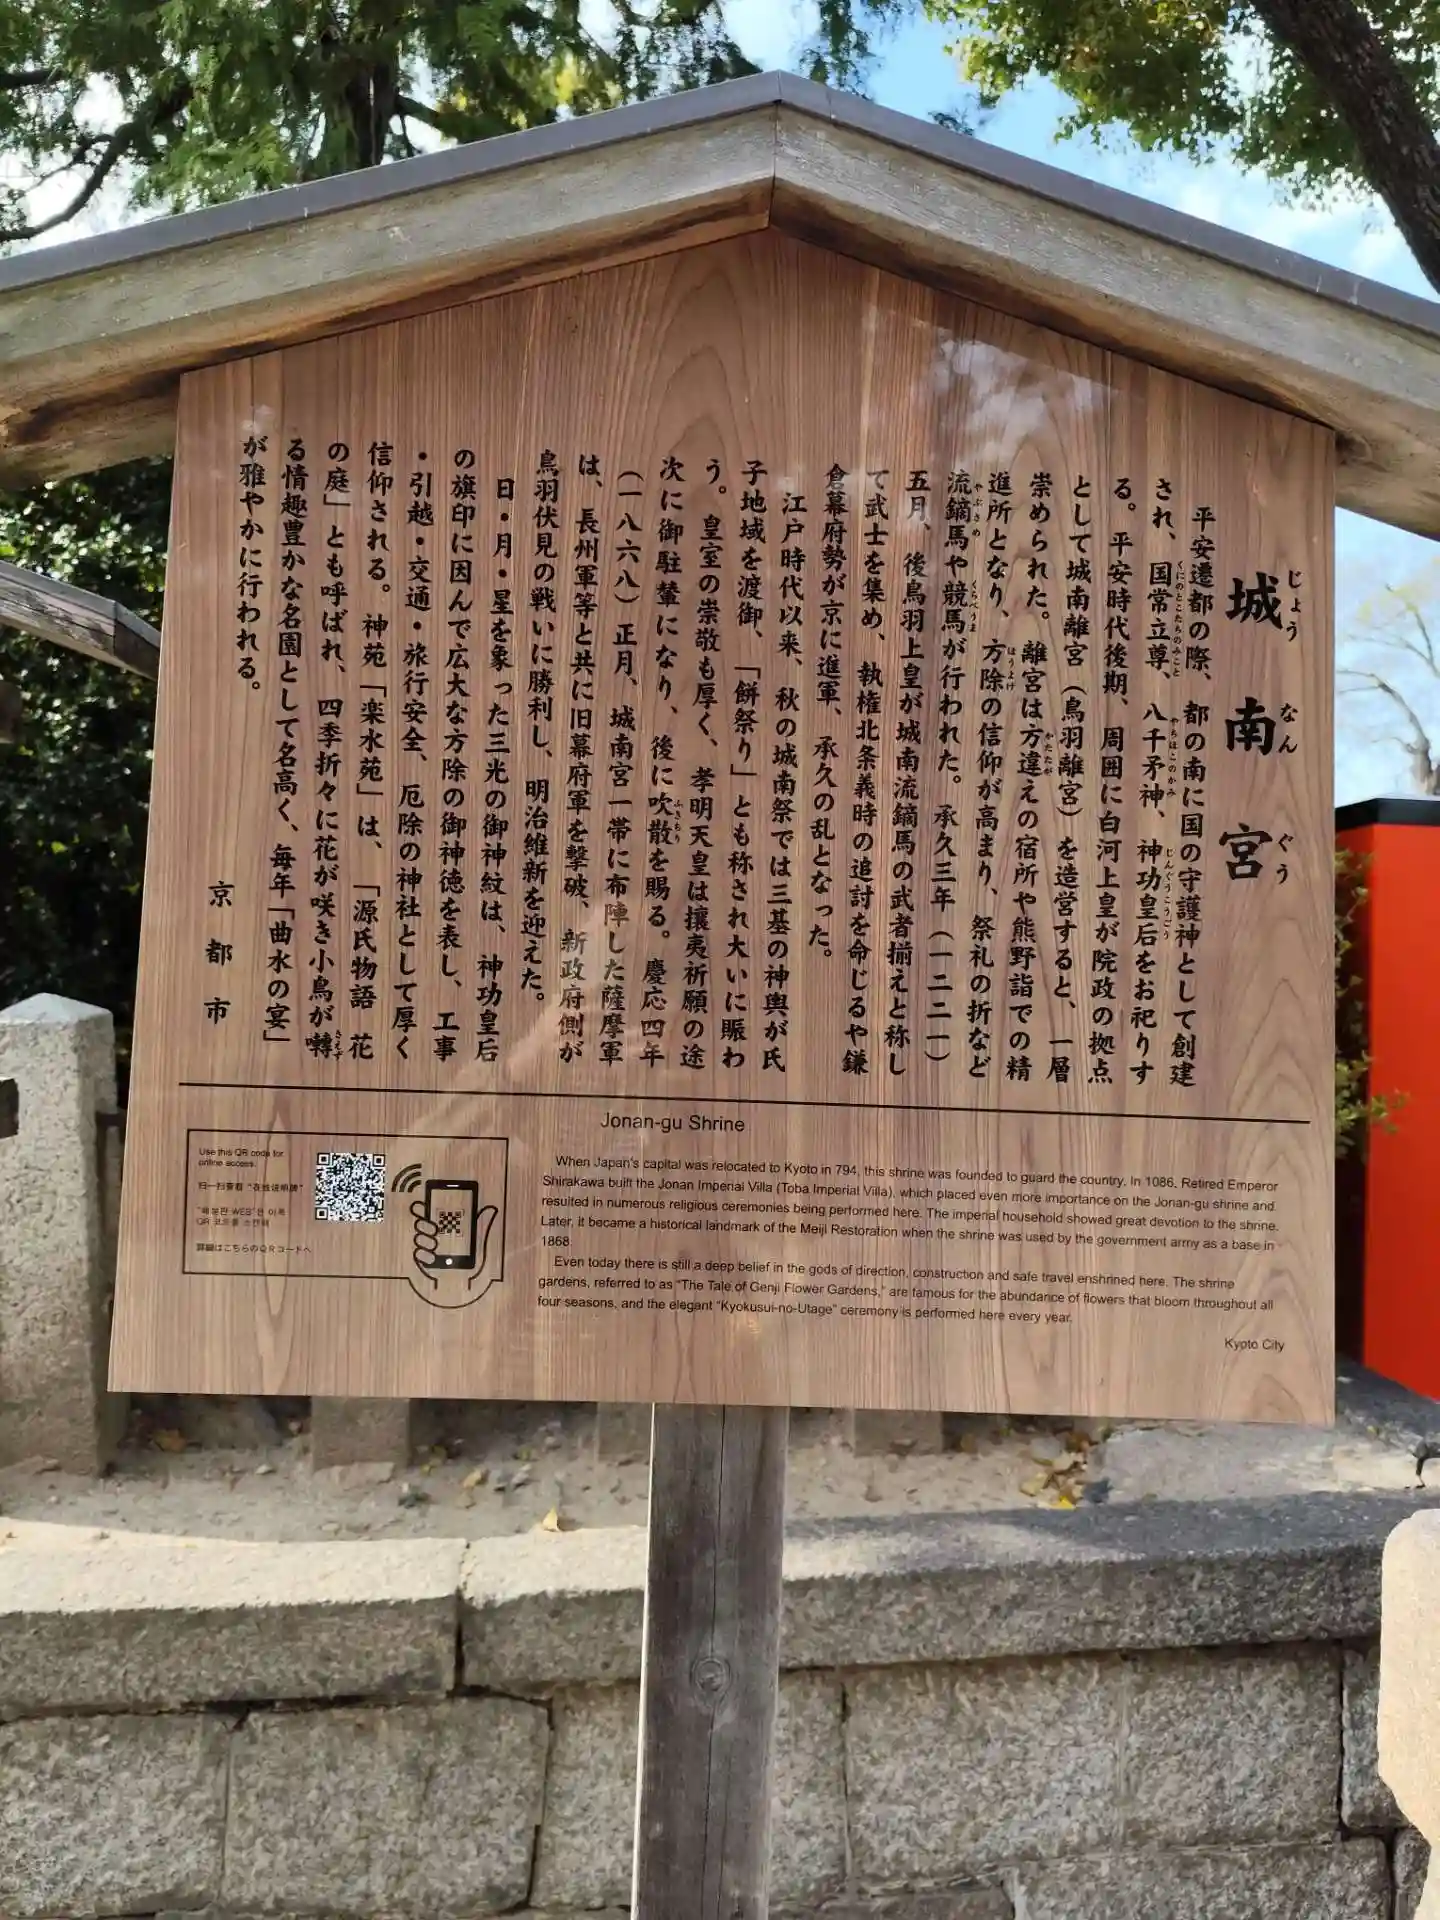 城南宮
じょうなんぐう
平安遷都の際、都の南に国の守護神として創建
され、国常立尊、八千矛神、神功皇后をお祀りす
くにのとこたちのみこと やちほこのかみ じんぐうこうごう
る。平安時代後期、周囲に白河上皇が院政の拠点
として城南離宮（鳥羽離宮）を造営すると、一層
崇められた。離宮は方違えの宿所や熊野詣での精
かたたが
進所となり、方除の信仰が高まり、祭礼の折など
ほうよけ
流鏑馬や競馬が行われた。承久三年（一二二一）
やぶさめ くらべうま
五月、後鳥羽上皇が城南流鏑馬の武者揃えと称し
て武士を集め、執権北条義時の追討を命じるや鎌
倉幕府勢が京に進軍、承久の乱となった。
江戸時代以来、秋の城南祭では三基の神輿が氏
子地域を渡御、「餅祭り」とも称され大いに賑わ
う。皇室の崇敬も厚く、孝明天皇は攘夷祈願の途
次に御駐輦になり、後に吹散を賜る。慶応四年
ふきちり
（一八六八）正月、城南宮一帯に布陣した薩摩軍
は、長州軍等と共に旧幕府軍を撃破、新政府側が
鳥羽伏見の戦いに勝利し、明治維新を迎えた。
日・月・星を象った三光の御神紋は、神功皇后
の旗印に因んで広大な方除の御神徳を表し、工事
・引越・交通・旅行安全、厄除の神社として厚く
信仰される。神苑「楽水苑」は、「源氏物語 花
の庭」とも呼ばれ、四季折々に花が咲き小鳥が囀
さえず
る情趣豊かな名園として名高く、毎年「曲水の宴」
が雅やかに行われる。
京都市
Jonan-gu Shrine
When Japan's capital was relocated to Kyoto in 794, this shrine was founded to guard the country. In 1086, Retired Emperor
Shirakawa built the Jonan Imperial Villa (Toba Imperial Villa), which placed even more importance on the Jonan-gu shrine and
resulted in numerous religious ceremonies being performed here. The imperial household showed great devotion to the shrine.
Later, it became a historical landmark of the Meiji Restoration when the shrine was used by the government army as a base in
1868.
Even today there is still a deep belief in the gods of direction, construction and safe travel enshrined here. The shrine
gardens, referred to as "The Tale of Genji Flower Gardens," are famous for the abundance of flowers that bloom throughout all
four seasons, and the elegant "Kyokusui-no-Utage" ceremony is performed here every year.
Kyoto City
Use this QR code for
online access.
扫一扫查看"在线说明牌"
QR 코드를 스캔해
詳細はこちらのQRコードへ